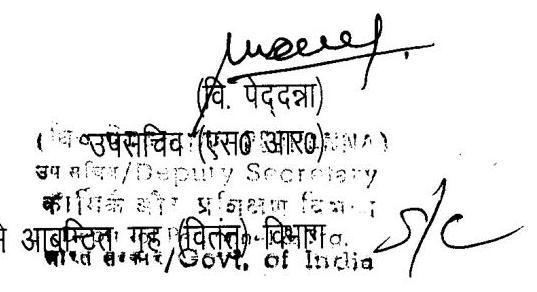 (वि. पेद्दन्ना)
उपसचिव (एस0 आर0)
उप सचिव/Deputy Secretary
कार्मिक और प्रशिक्षण विभाग
आबन्टित गृह (वितत्त) विभाग
भारत सरकार/Govt. of India
S/C